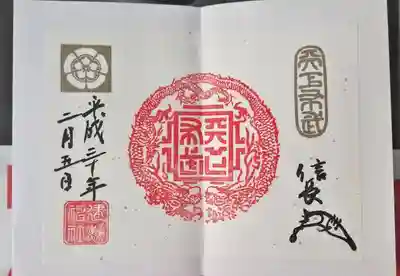 天下布武
信長
天下布武
平成三十年
二月五日
建勲神社